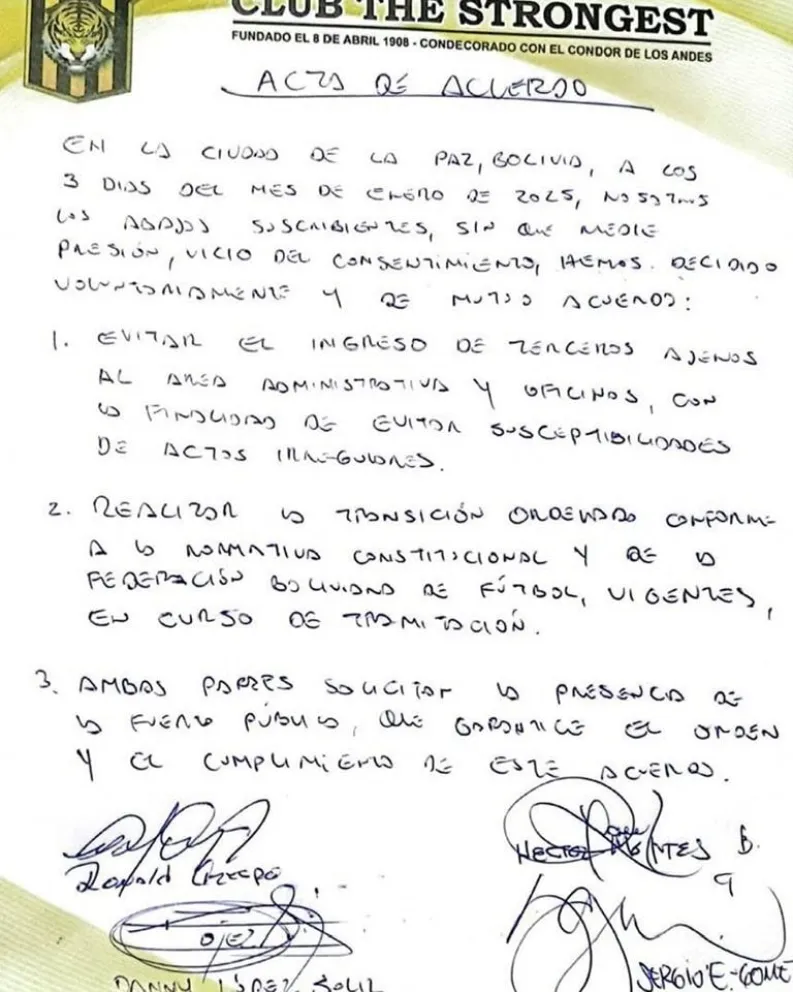 CLUB THE STRONGEST
FUNDADO EL 8 DE ABRIL 1908 - CONDECORADO CON EL CONDOR DE LOS ANDES
ACTA DE ACUERDO
EN LA CIUDAD DE LA PAZ, BOLIVIA, A LOS
3 DIAS DEL MES DE ENERO DE 2025, NOSOTROS
LOS ABAJO SUSCRIBIENTES, SIN QUE MEDIE
PRESIÓN, VICIO DEL CONSENTIMIENTO, HEMOS DECIDIDO
VOLUNTARIAMENTE Y DE MUTUO ACUERDO:
1. EVITAR EL INGRESO DE TERCEROS AJENOS
AL AREA ADMINISTRATIVA Y OFICINAS, CON
LA FINALIDAD DE EVITAR SUSCEPTIBILIDADES
DE ACTOS IRREGULARES.
2. REALIZAR LA TRANSICIÓN ORDENADA CONFORME
A LA NORMATIVA CONSTITUCIONAL Y DE LA
FEDERACIÓN BOLIVIANA DE FÚTBOL, VIGENTES,
EN CURSO DE TRAMITACIÓN.
3. AMBAS PARTES SOLICITAR LA PRESENCIA DE
LA FUERZA PÚBLICA, QUE GARANTICE EL ORDEN
Y EL CUMPLIMIENTO DE ESTE ACUERDO.
HECTOR MONTES B.
Ronald Crespo
DANNY LÓPEZ SOLIZ
SERGIO E. GOMEZ